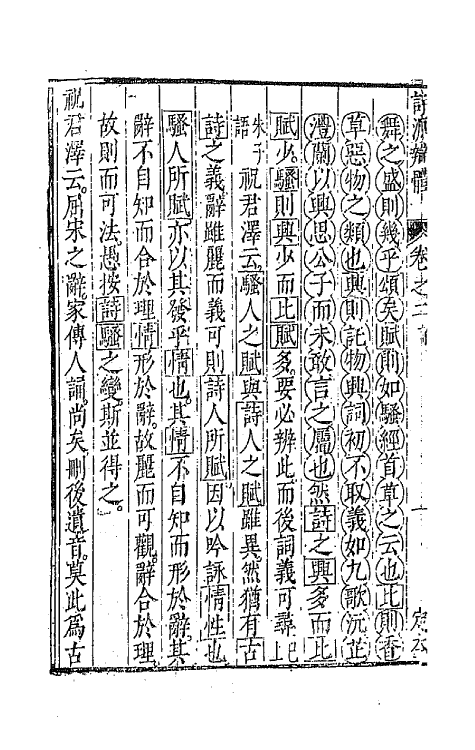 詩源辯體 卷之二
舞之盛則幾乎頌矣賦則如騷經首章之云也比則香
草惡物之類也興則託物興詞初不取義如九歌沅芷
澧蘭以興思公子而未敢言之屬也然詩之興多而比
賦少騷則興少而比賦多要必辨此而後詞義可尋已上
朱子語 祝君澤云騷人之賦與詩人之賦雖異然猶有古
詩之義辭雖麗而義可則詩人所賦因以吟詠情性也
騷人所賦亦以其發乎情也其情不自知而形於辭其
辭不自知而合於理情形於辭故麗而可觀辭合於理
故則而可法愚按詩騷之變斯並得之
祝君澤云屈宋之辭家傳人誦尚矣刪後遺音莫此為古